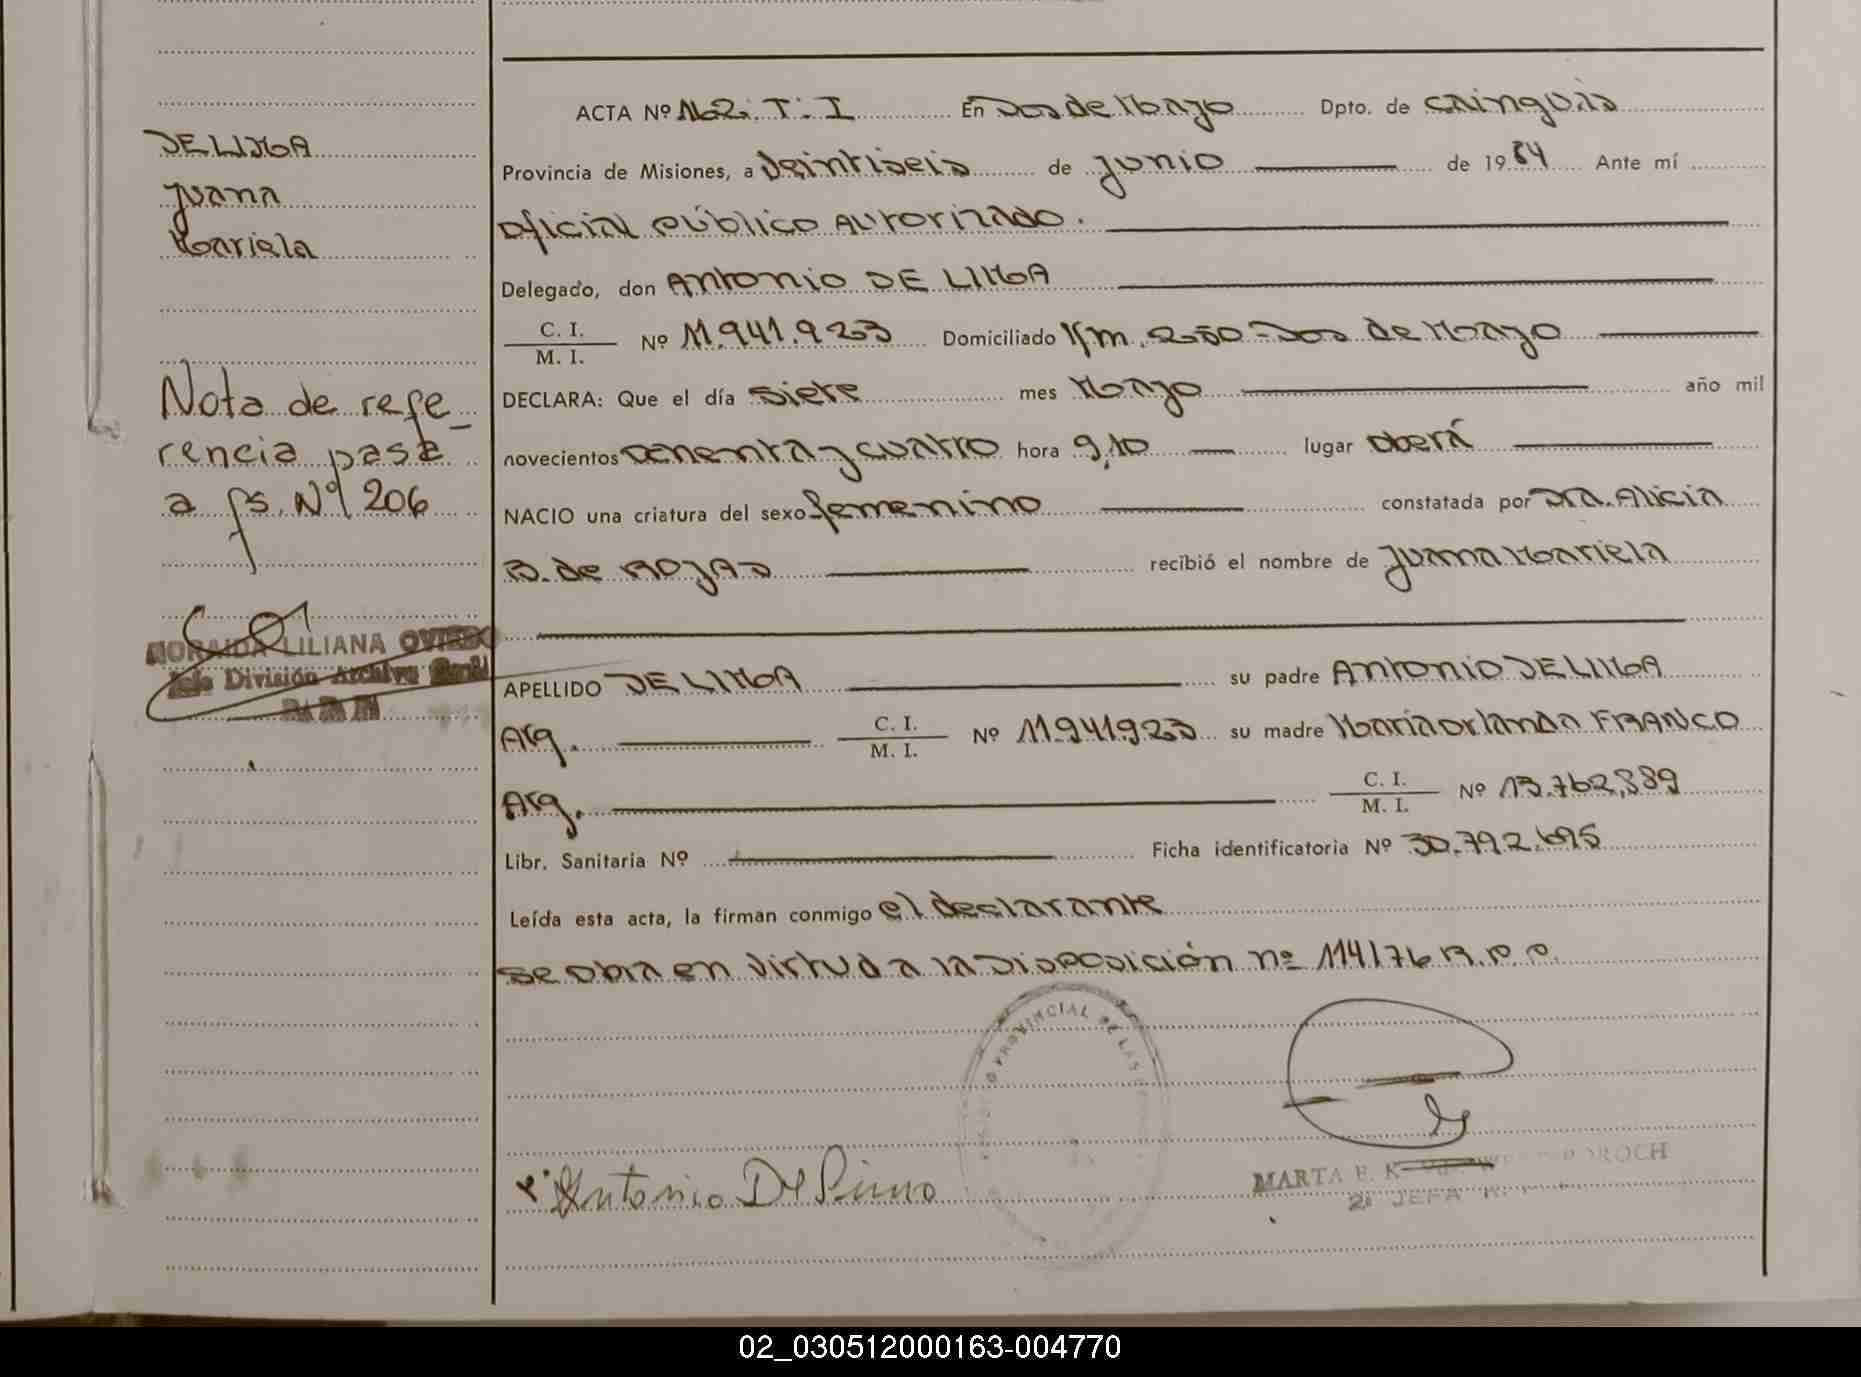 DE LIMA
Juana
Mariela
Nota de refe_
rencia pasa
a fs. Nº 206
LILIANA OVIEDO
Jefe División Archivo Gral
ACTA Nº 162. T: I En Dos de Mayo Dpto. de Cainguás
Provincia de Misiones, a Veintiseis de junio de 1984 Ante mí
oficial público autorizado.
Delegado, don Antonio DE LIMA
C. I.
M. I. Nº 11.941.923 Domiciliado Km. 250 - Dos de Mayo
DECLARA: Que el día siete mes Mayo año mil
novecientos ochenta y cuatro hora 9,10 lugar Oberá
NACIO una criatura del sexo femenino constatada por Dra. Alicia
B. de Rojas recibió el nombre de Juana Mariela
APELLIDO DE LIMA su padre Antonio DE LIMA
Arg. C. I.
M. I. Nº 11.941.923 su madre Maria Orlanda FRANCO
Arg. C. I.
M. I. Nº 13.762.889
Libr. Sanitaria Nº Ficha identificatoria Nº 30.792.695
Leída esta acta, la firman conmigo el declarante
se obra en virtud a la Disposición nº 114/76 R.P.P.
PROVINCIAL DE LAS
Antonio De Lima
MARTA E. K
2ª JEFA
02_030512000163-004770